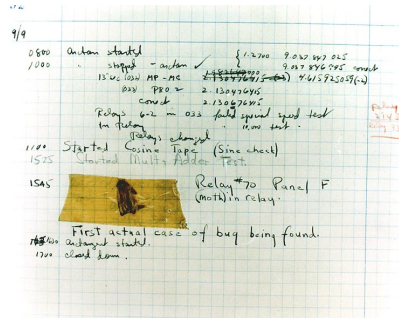 9/9
0800 antan started
1000 " stopped - antan ✓ { 1.2700 9.037 847 025
9.037 846 995 correct
13" UC (032) MP-MC 2.130476415 (-3) 4.615925059(-2)
(033) PRO 2 2.130476415
correct 2.130676415
Relays 6-2 in 033 failed special speed test
In Relay " 10.000 test.
Relays changed
1100 Started Cosine Tape (Sine check)
1525 Started Mult+Adder Test.
1545 Relay #70 Panel F
(moth) in relay.
First actual case of bug being found.
1630 antangent started.
1700 closed down.